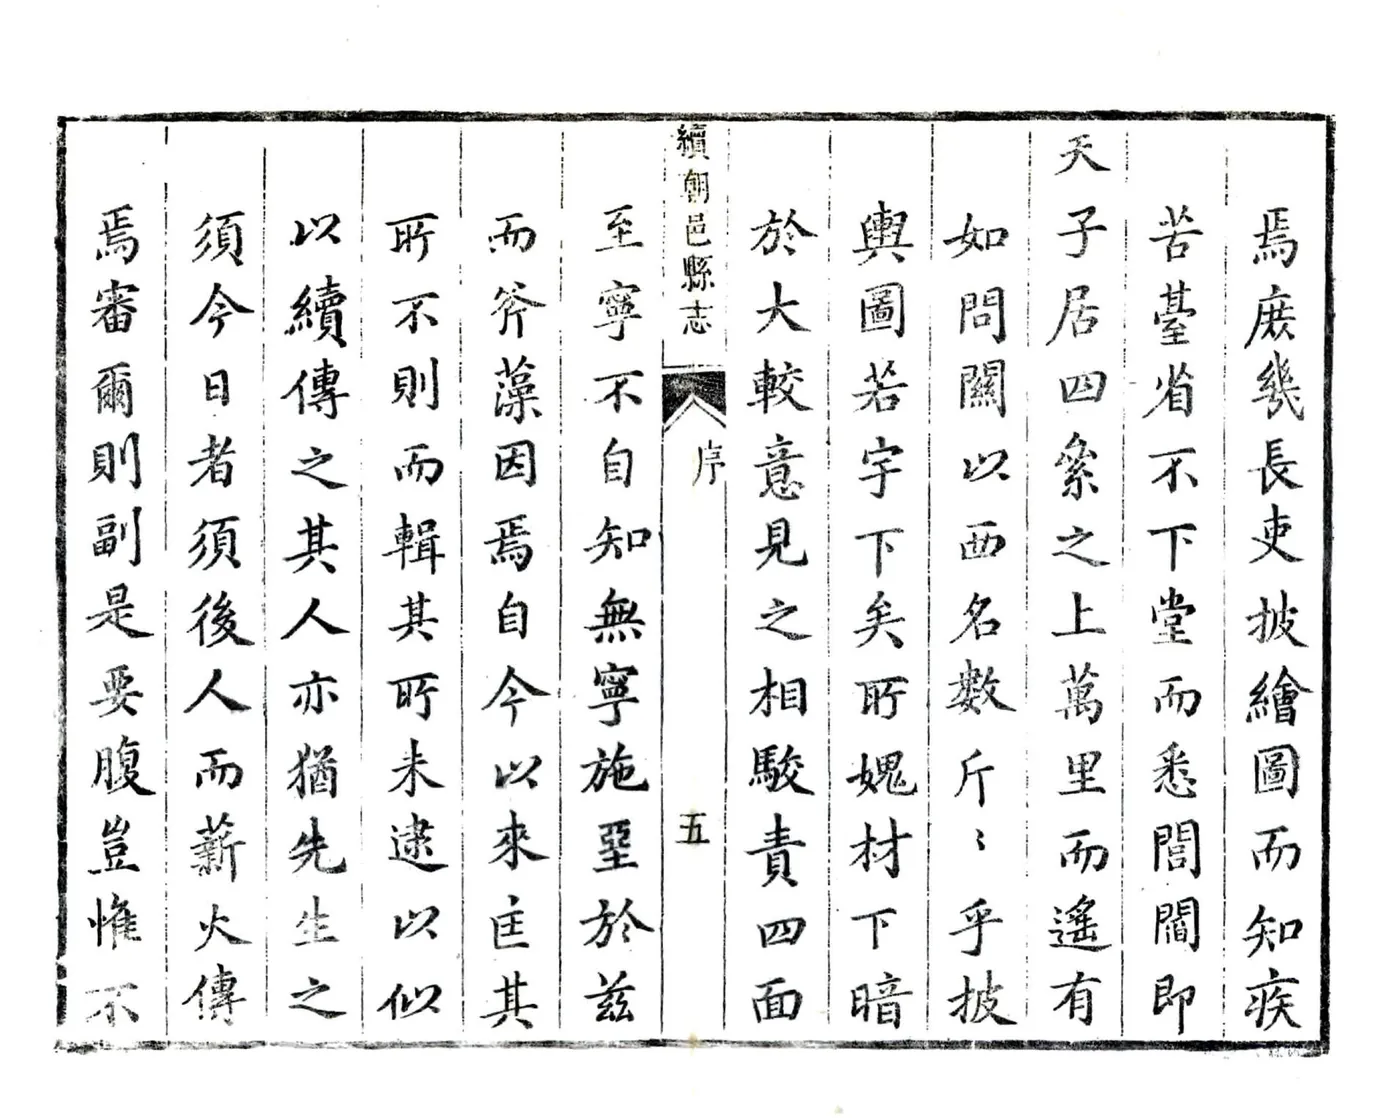 焉庶幾長吏披繪圖而知疾
苦臺省不下堂而悉閭閻即
天子居四㒼之上萬里而遙有
如問關以西名數斤〻乎披
輿圖若宇下矣所媿材下暗
於大較意見之相駁責四面
續朝邑縣志
序
五
至寧不自知無寧施堊於茲
而斧藻因焉自今以來匡其
所不則而輯其所未逮以似
以續傳之其人亦猶先生之
須今日者須後人而薪火傳
焉審爾則副是要腹豈惟不